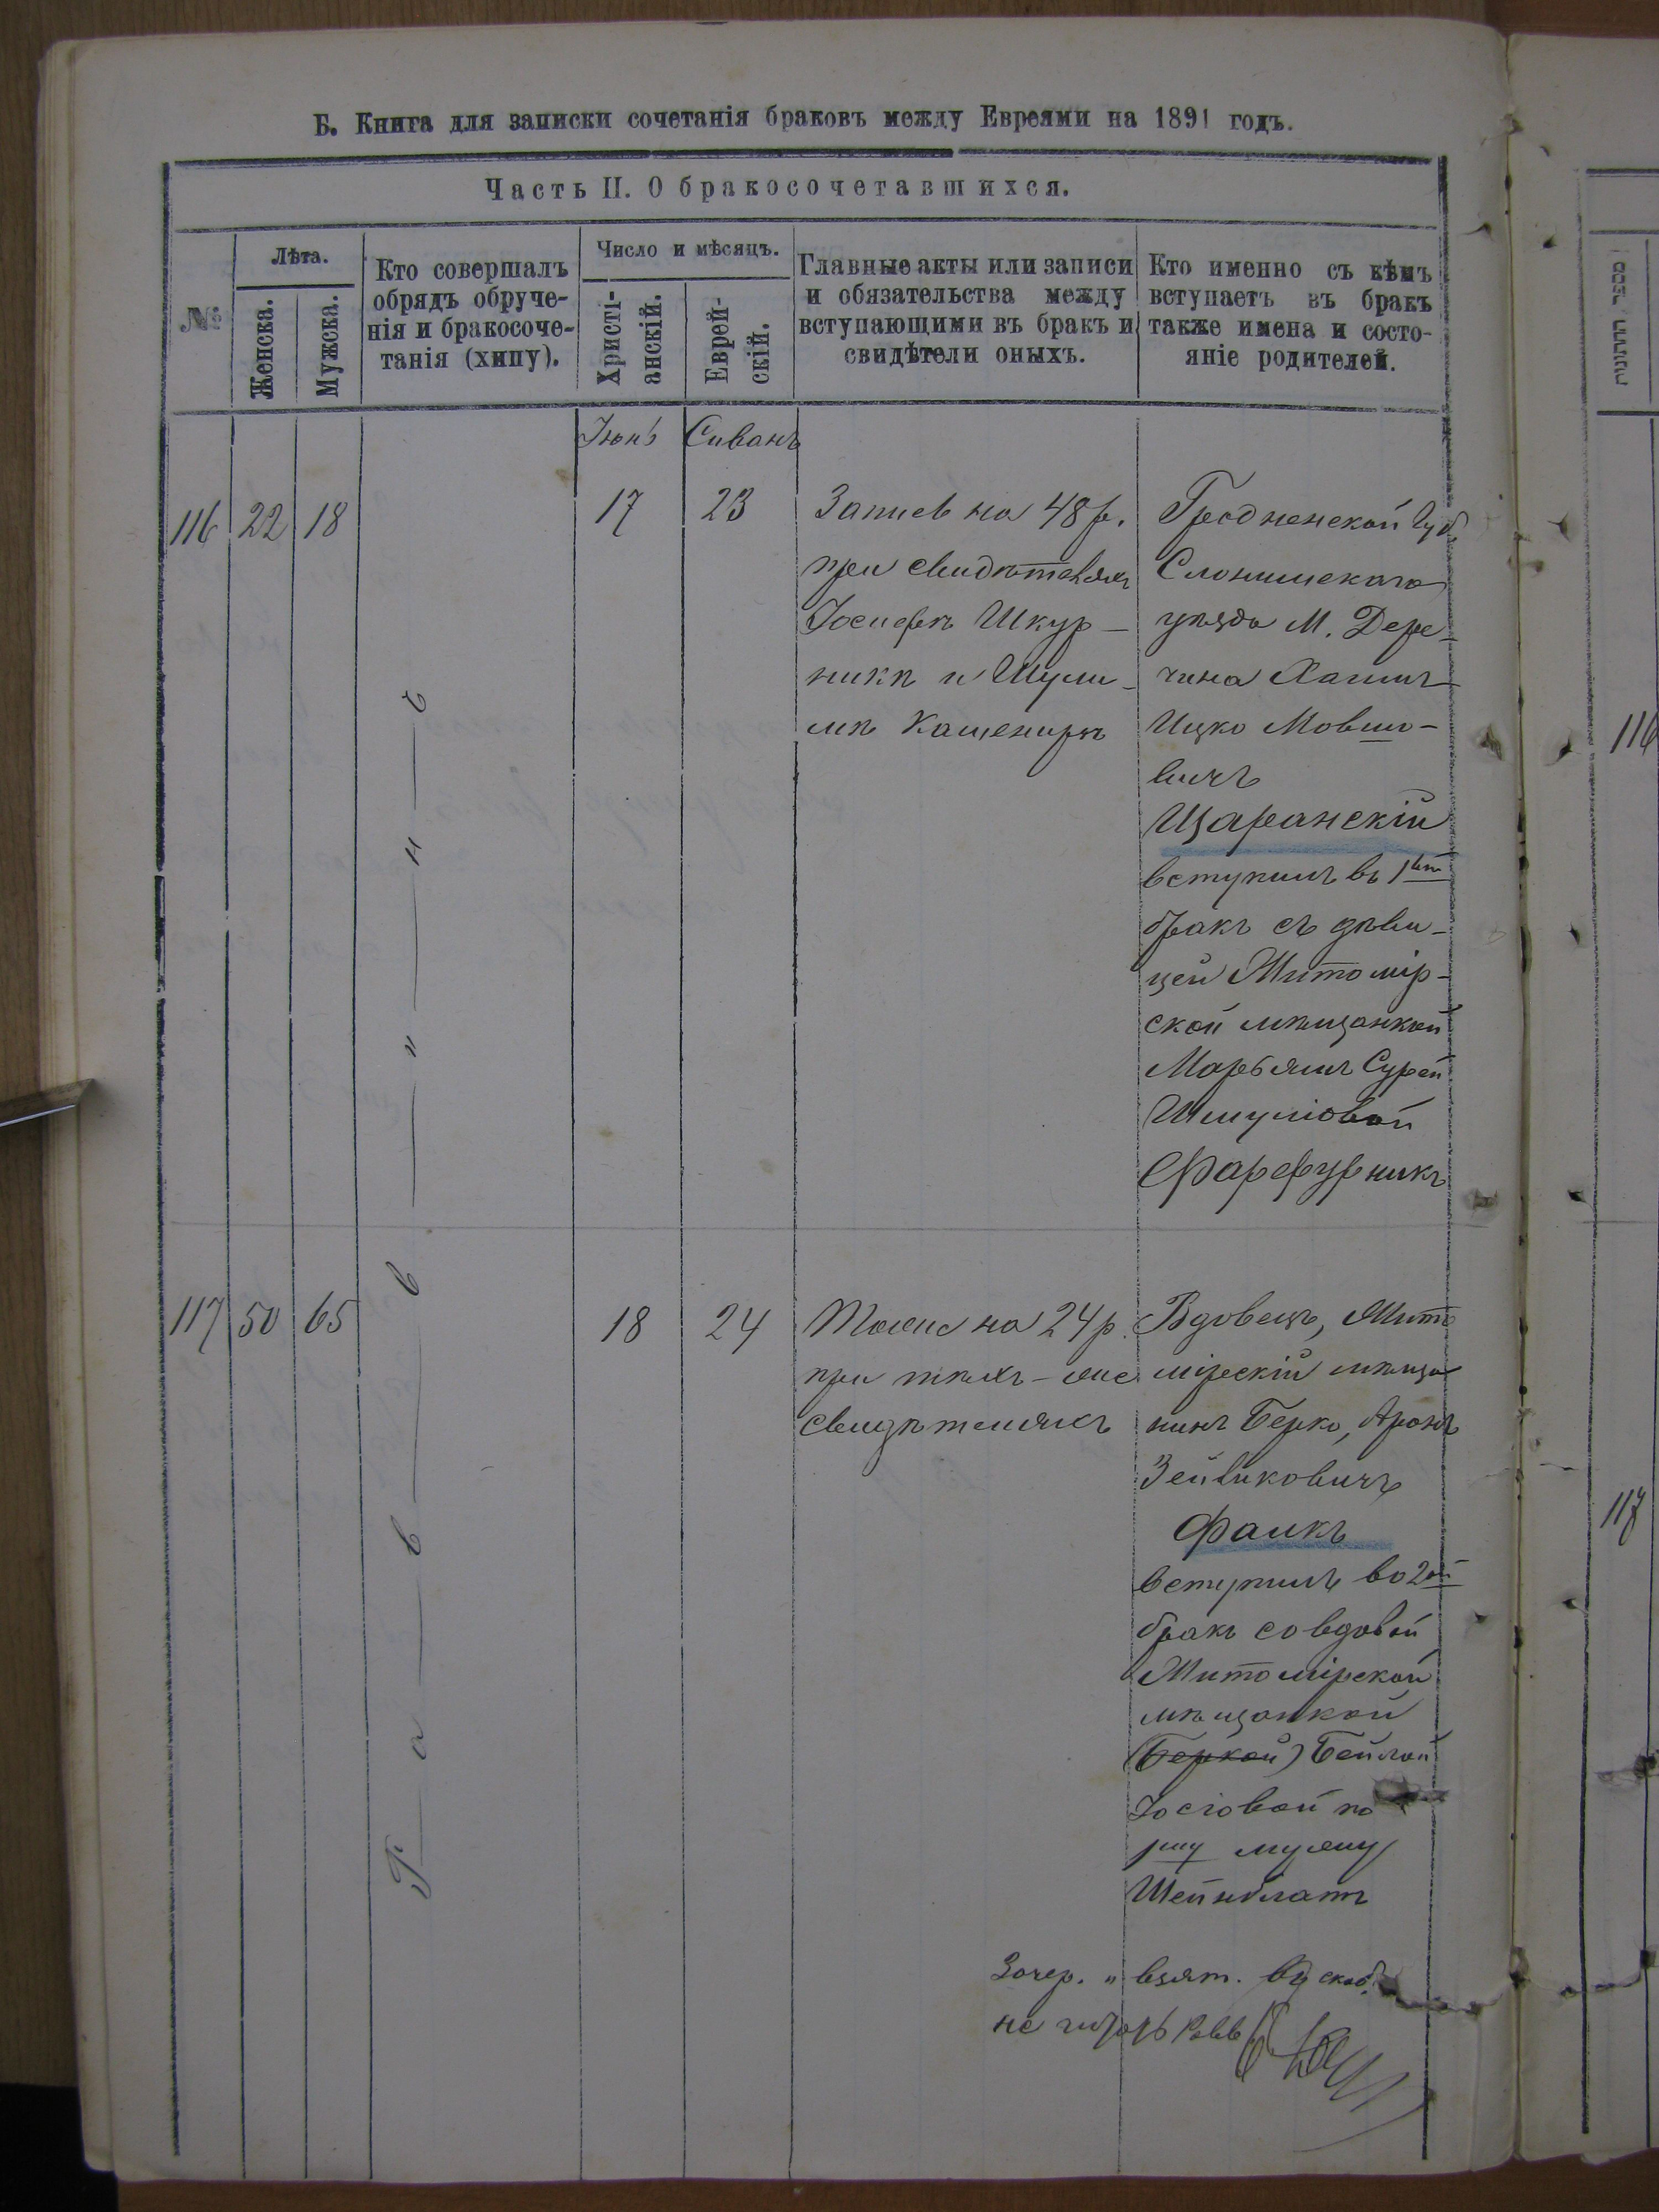 Б. Книга для записки сочетанія браковъ между Евреями на 1891 годъ.
Часть II. О бракосочетавшихся.
№
Лѣта.
Женска.
Мужска.
Кто совершалъ
обрядъ обруче-
нія и бракосоче-
танія (хипу).
Число и мѣсяцъ.
Христі-
анскій.
Еврей-
скій.
Главные акты или записи
и обязательства между
вступающими въ бракъ и
свидѣтели оныхъ.
Кто именно съ кѣмъ
вступаетъ въ бракъ
также имена и состо-
яніе родителей.
Іюнь Сиванъ
116 22 18
17 23
Запись на 48 р.
при свидѣтеляхъ
Іосифѣ Шкур-
никѣ и Шули-
мѣ Кашенирѣ
Гродненской Губ.
Слонимскаго
уѣзда М. Дере-
чина Хаимъ
Ицко Мовшо-
вичъ
Щаранскій
вступилъ въ 1ый
бракъ съ дѣви-
цей Житомір-
ской мѣщанкой
Марьямъ Сурой
Шмуліовой
Фарфурникъ
Р а в в и н ъ
117 50 65
18 24
Тоже на 24 р.
при тѣхъ-же
свидѣтеляхъ
Вдовецъ, Жито
мірскій мѣща
нинъ Берко, Аронъ
Зейликовичъ
Фалкъ
вступилъ во 2ой
бракъ со вдовой
Житомірской
мѣщанкой
(Беркой) Бейлой
Іосіовой по
1му мужу
Шейнблатъ
Зачер. и взят. въ скоб.
не читать Равв
116
117